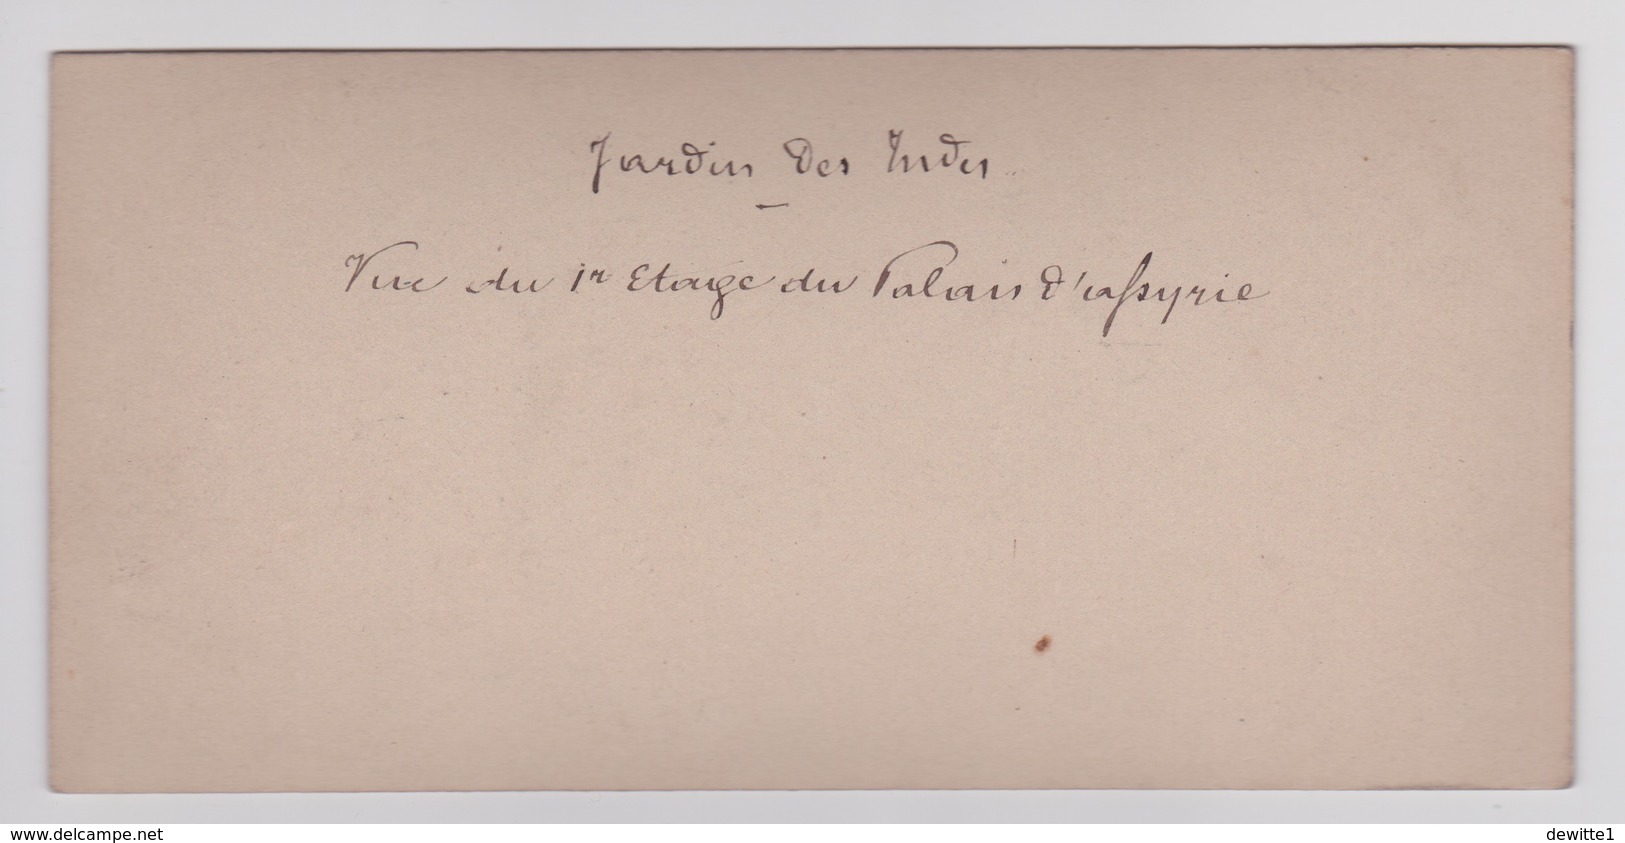 Jardin des Indes
Vue du 1r Etage du Palais d'assyrie
www.delcampe.net
dewitte1